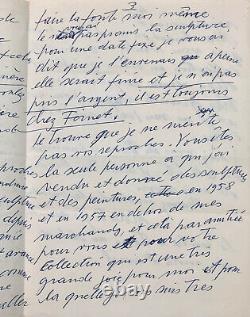 3
faire la fonte moi même
je n'ai pas promis la sculpture
pour une date fixe je vous ai
dit que je l'enverrais à peine
elle serait faite et je n'ai pas
pris l'argent, il est toujours
chez Fornet.
je trouve que je ne mérite
pas vos reproches. Vous êtes
la seule personne à qui j'ai
vendu et donné des sculptures
et des peintures, en 1958
et en 1957 en dehors de mes
marchands, et cela par amitié
pour vous et pour votre
collection qui est une très
grande joie pour moi et pour
la quelle je suis très